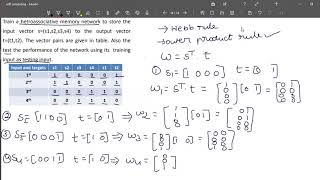 Train a hetroassociative memory network to store the
input vector s=(s1,s2,s3,s4) to the output vector
t=(t1,t2). The vector pairs are given in table. Also
test the performance of the network using its training
input as testing input.
Input and targets s1 s2 s3 s4 t1 t2
1st 1 0 0 0 0 1
2nd 1 1 0 0 0 1
3rd 0 0 0 1 1 0
4th 0 0 1 1 1 0
→ Hebb rule
→ Outer product rule
W = Sᵀ. t
① S₁ = [1 0 0 0] t = [0 1]
② S₂ = [1 1 0 0] t = [0 1] ⇒ W₂ = [1 1 0 0] [0 1] = [0 1 0 1 0 0 0 0]
③ S₃ = [0 0 0 1] t = [1 0] ⇒ W₃ = [0 0 0 1] [1 0] = [0 0 0 0 0 0 1 0]
④ S₄ = [0 0 1 1] t = [1 0] ⇒ W₄ =